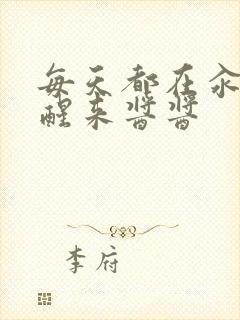 每天都在汆
醒来酱酱
李府